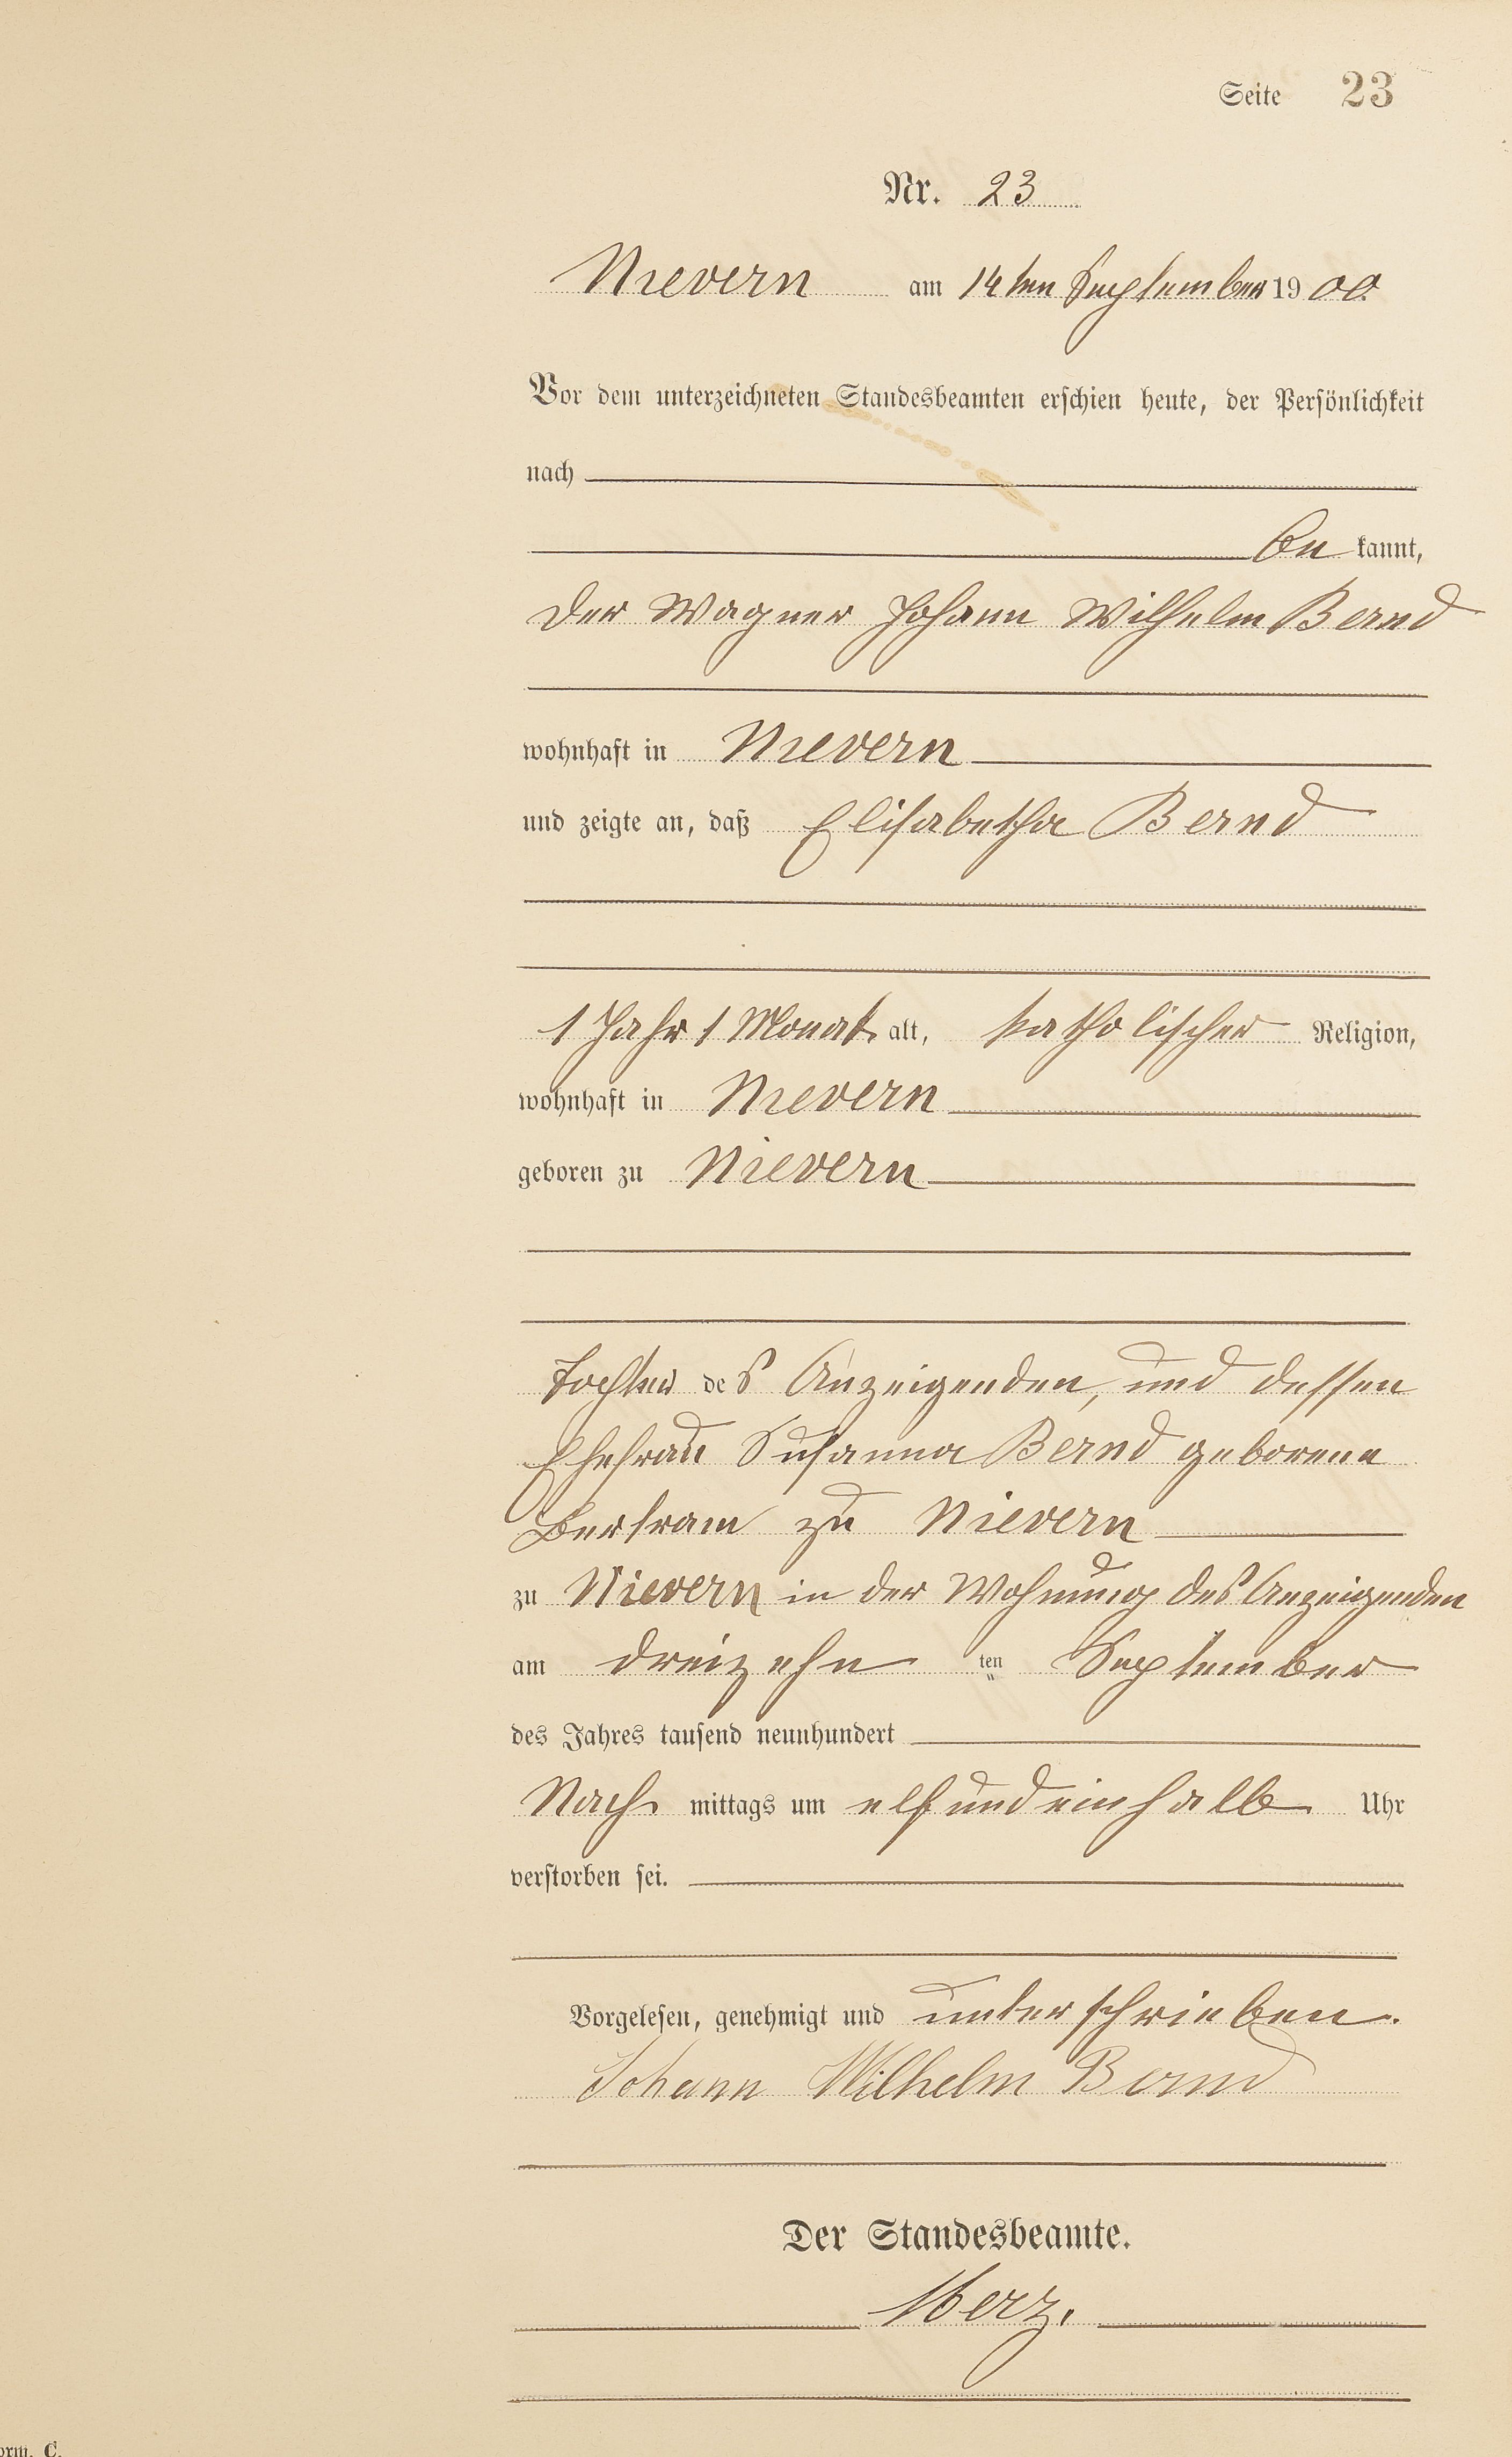 Seite 23
Nr. 23
Nievern am 14ten September 1900.
Vor dem unterzeichneten Standesbeamten erschien heute, der Persönlichkeit
nach
be kannt,
der Wagner Johann Wilhelm Bernd
wohnhaft in Nievern
und zeigte an, daß Elisabetha Bernd
1 Jahr 1 Monat alt, katholischer Religion,
wohnhaft in Nievern
geboren zu Nievern
Tochter des Anzeigenden, und dessen
Ehefrau Susanna Bernd geborene
Bertram zu Nievern
zu Nievern in der Wohnung des Anzeigenden
am dreizehn ten September
des Jahres tausend neunhundert
Nach mittags um elf und ein halb Uhr
verstorben sei.
Vorgelesen, genehmigt und unterschrieben.
Johann Wilhelm Bernd
Der Standesbeamte.
orm. C.